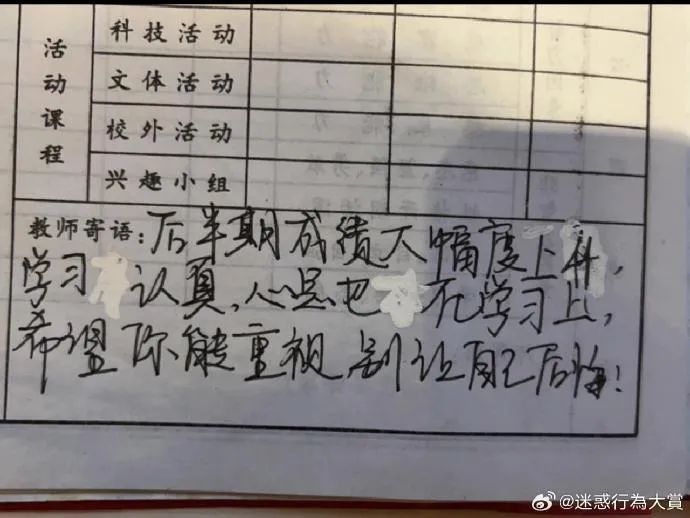 活动课程
科技活动
文体活动
校外活动
兴趣小组
教师寄语：后半期成绩大幅度上升，
学习 认真，心思也 在学习上，
希望你能重视，别让自己后悔！
@迷惑行為大賞